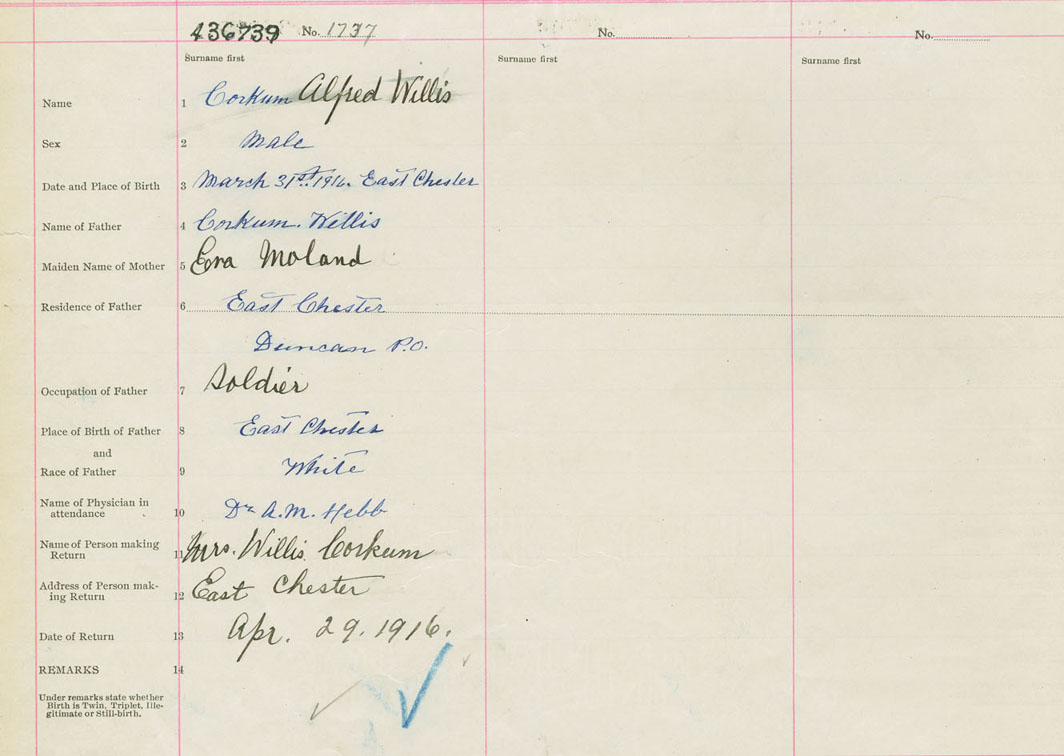 436739 No. 1737 No. No.
Surname first Surname first Surname first
Name 1 Corkum Alfred Willis
Sex 2 Male
Date and Place of Birth 3 March 31st. 1916. East Chester
Name of Father 4 Corkum. Willis
Maiden Name of Mother 5 Eva Moland
Residence of Father 6 East Chester
Duncan P.O.
Occupation of Father 7 Soldier
Place of Birth of Father 8 East Chester
and
Race of Father 9 White
Name of Physician in
attendance 10 Dr A.M. Hebb
Name of Person making
Return 11 Mrs. Willis Corkum
Address of Person mak-
ing Return 12 East Chester
Date of Return 13 Apr. 29. 1916.
REMARKS 14
Under remarks state whether
Birth is Twin, Triplet, Ille-
gitimate or Still-birth.